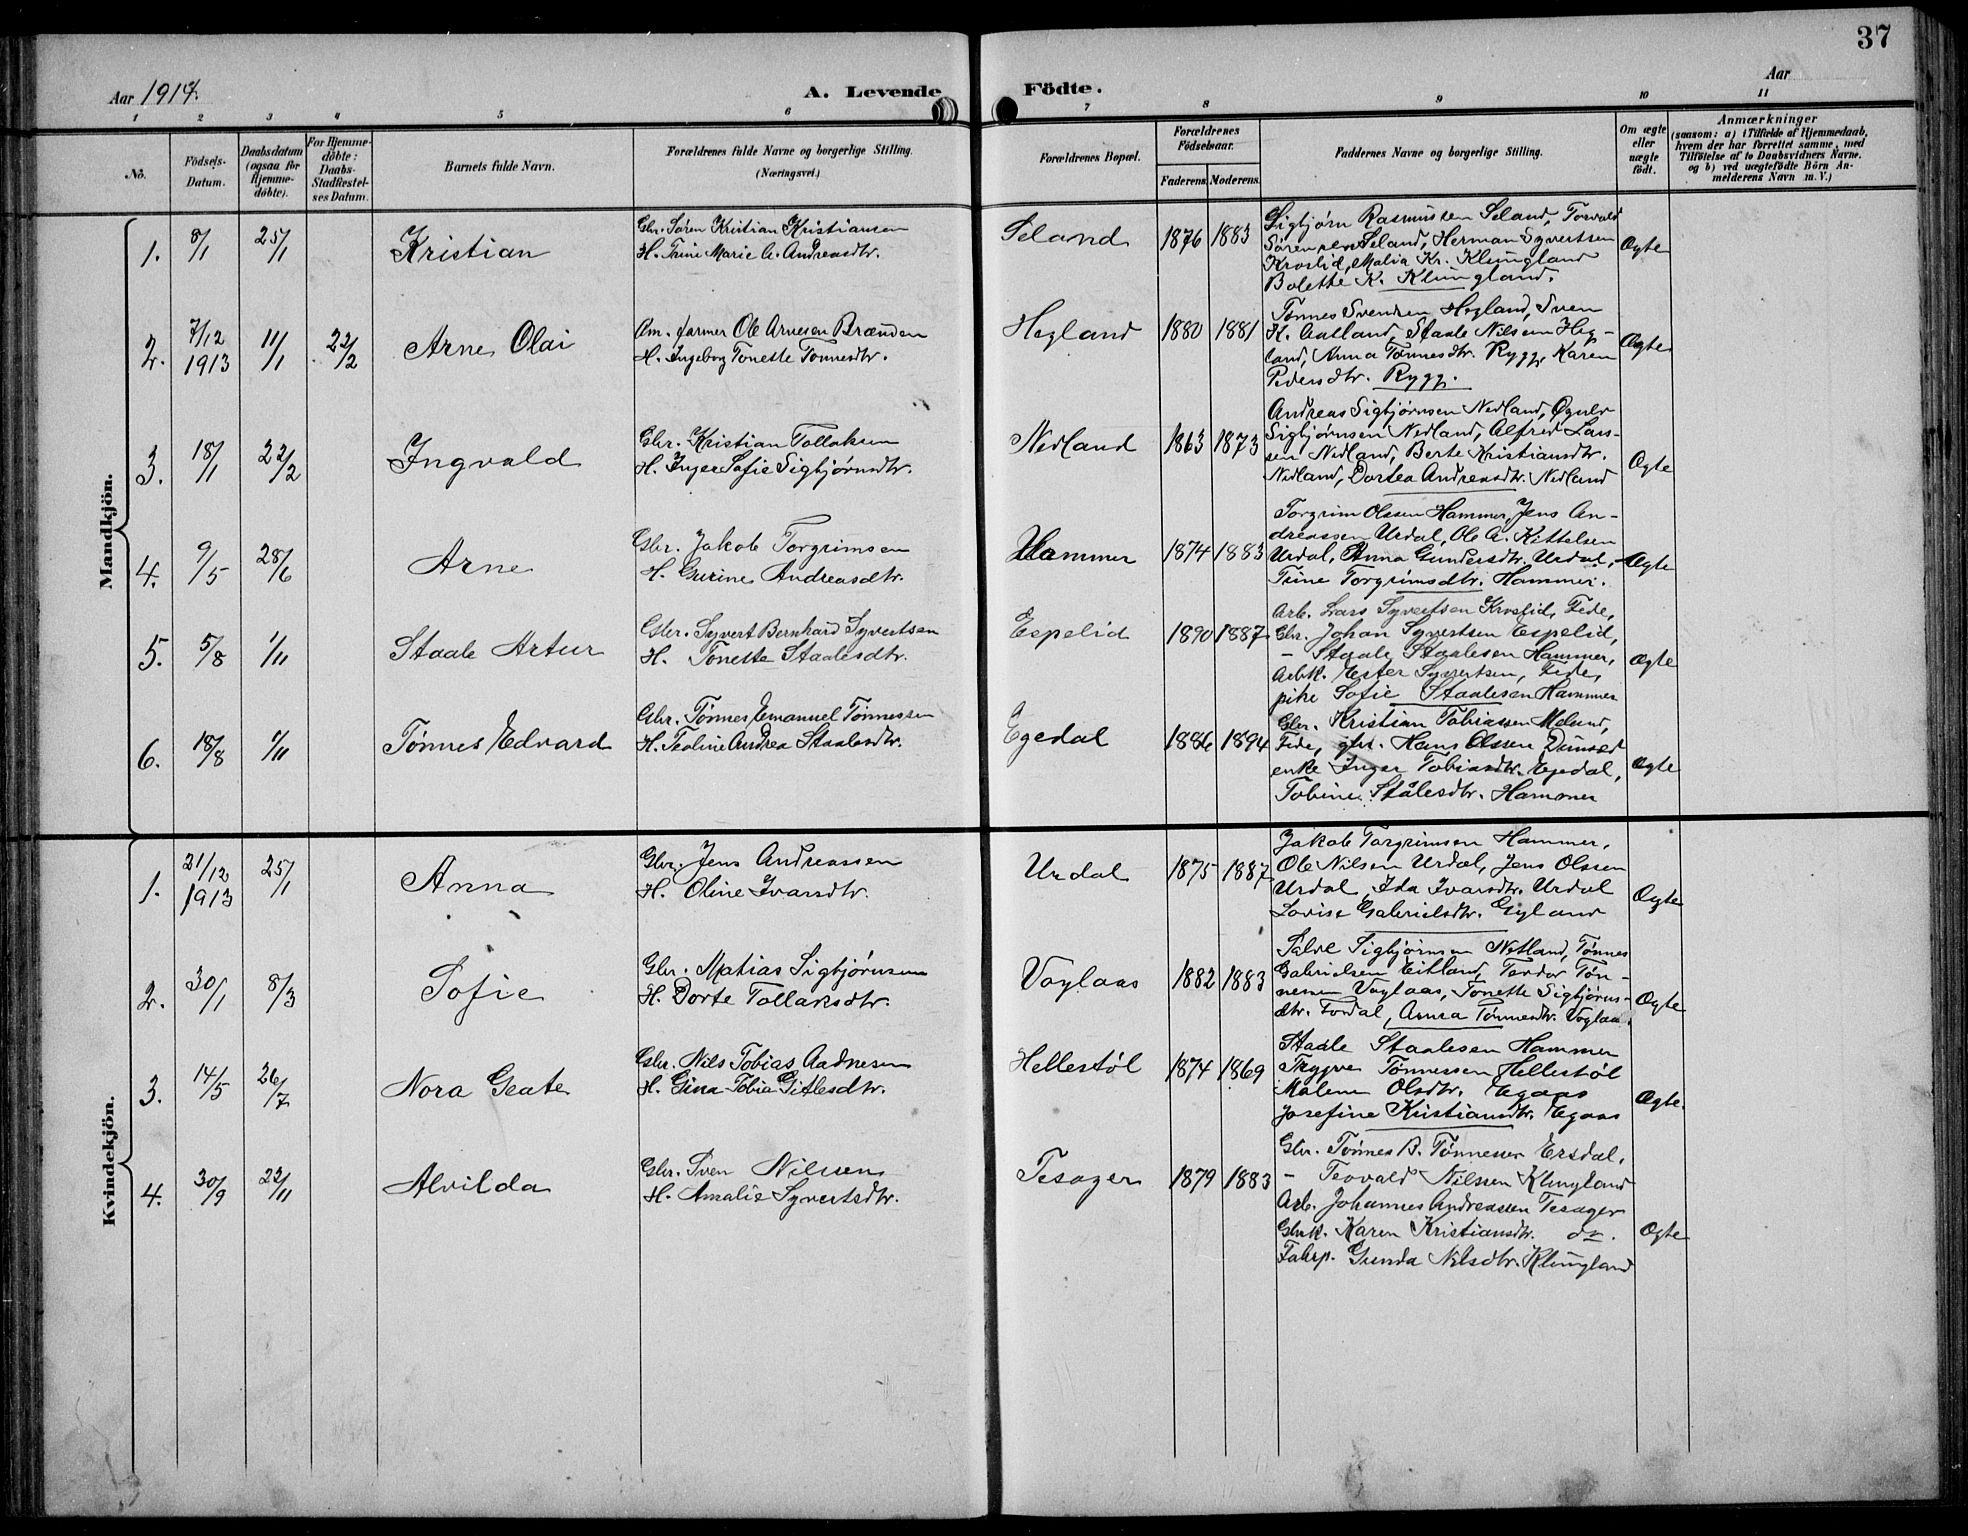 37
Aar 1914.
A. Levende
Födte.
Aar
1 2 3 4 5 6 7 8 9 10 11
No.
Födsels-
Datum.
Daabsdatum
(ogsaa for
Hjemme-
döbte).
For Hjemme-
döbte:
Daabs-
Stadfestel-
ses Datum.
Barnets fulde Navn.
Forældrenes fulde Navne og borgerlige Stilling.
(Næringsvei.)
Forældrenes Bopæl.
Forældrenes
Födselsaar.
Faderens. Moderens.
Faddernes Navne og borgerlige Stilling.
Om ægte
eller
uægte
født.
Anmærkninger
(saasom: a) i Tilfælde af Hjemmedaab,
hvem der har forrettet samme, med
Tilföielse af to Daabsvidners Navne.
og b) ved uægtefödte Börn An-
melderens Navn m. V.)
Mandkjön.
1. 8/1 25/1 Kristian
Gbr. Søren Kristian Kristiansen
H. Trine Marie A. Andreasdtr.
Seland 1876 1883
Sigbjørn Rasmussen Seland, Torvald
Sørensen Seland, Herman Syvertsen
Kroslid, Malia Kr. Klungland
Bolette K. Klungland.
Ægte
2. 7/12 1913 11/1 22/2 Arne Olai
Am. farmer Ole Arnesen Brænden
H. Ingeborg Tonette Tønnesdtr.
Hegland 1880 1881
Tønnes Svendsen Hegland, Sven
K. Aatland, Staale Nilsen Heg-
land, Anna Tønnesdtr. Rygg, Karen
Pedersdtr. Rygg.
Ægte
3. 18/1 22/2 Ingvald
Gbr. Kristian Tollaksen
H. Inger Sofie Sigbjørnsdtr.
Nedland 1863 1873
Andreas Sigbjørnsen Nedland,
Sigbjørnsen Nedland, Alfred Lars-
sen Nedland, Berte Kristiansdtr.
Nedland, Dortea Andreasdtr. Nedland
Ægte
4. 9/5 28/6 Arne
Gbr. Jakob Torgrimsen
H. Gurine Andreasdtr.
Hammer 1874 1883
Torgrim Olssen Hammer, Jens An-
dreassen Urdal, Ole A. Kittelsen
Urdal, Anna Gundersdtr. Urdal,
Trine Torgrimsdtr. Hammer.
Ægte
5. 5/8 1/11 Staale Artur
Gbr. Syvert Bernhard Syvertsen
H. Tonette Staalesdtr.
Espelid 1890 1887
Arb. Lars Syvertsen Kroslid, Fede,
Gbr. Johan Syvertsen Espelid,
- Staale Staalesen Hammer,
Arbk. Ester Syvertsen, Fede,
pike Sofie Staalesen Hammer
Ægte
6. 18/8 1/11 Tønnes Edvard
Gbr. Tønnes Emanuel Tønnessen
H. Teoline Andrea Staalesdtr.
Egedal 1886 1894
Gbr. Kristian Tobiassen Melund,
Fede, gbr. Hans Olssen
enke Inger Tobiasdtr. Egedal,
Tobine Stålesdtr. Hammer
Ægte
Kvindekjön.
1. 21/12 1913 25/1 Anna
Gbr. Jens Andreassen
H. Oline Ivarsdtr.
Urdal 1875 1887
Jakob Torgrimsen Hammer,
Ole Nilsen Urdal, Jens Olssen
Urdal, Ida Ivarsdtr. Urdal
Lovise Gabrielsdtr. Gyland
Ægte
2. 30/1 8/3 Sofie
Gbr. Matias Sigbjørnsen
H. Dorte Tollaksdtr.
Voglaas 1882 1883
Salve Sigbjørnsen Netland, Tønnes
Gabrielsen Eitland, Teodor Tøn-
nesen Voglaas, Tonette Sigbjørns-
dtr. Fordal, Anna Tønnesdtr. Voglaas.
Ægte
3. 14/5 26/7 Nora Geate
Gbr. Nils Tobias Aadnesen
H. Gina Tobia Gitlesdtr.
Hellestøl 1874 1869
Staale Staalesen Hammer
Trygve Tønnessen Hellestøl
Malene Olsdtr. Egaas
Josefine Kristiansdtr. Egaas
Ægte.
4. 30/9 22/11 Alvilda
Gbr. Sven Nilssen
H. Amalie Syvertsdtr.
Tesager 1879 1883
Gbr. Tønnes B. Tønnessen Ersdal,
- Teovald Nilssen Klungland
Arb. Johannes Andreassen Tesager
Gbrk. Karen Kristiansdtr. do.
Fabrp. Gunda Nilsdtr. Klungland
Ægte